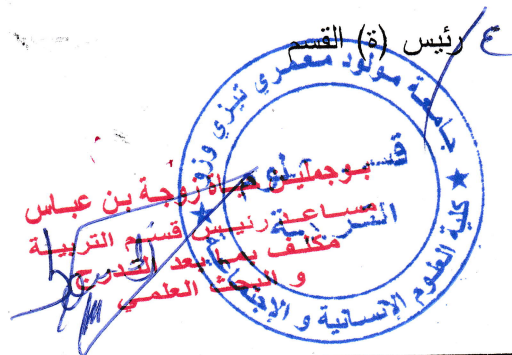 ع / رئيس (ة) القسم
جامعة مولود معمري تيزي وزو
كلية العلوم الإنسانية و الإجتماعية
قسم علوم
التربية
بوجملين حياة زوجة بن عباس
مساعد رئيس قسم التربية
مكلف بما بعد التدرج
و البحث العلمي